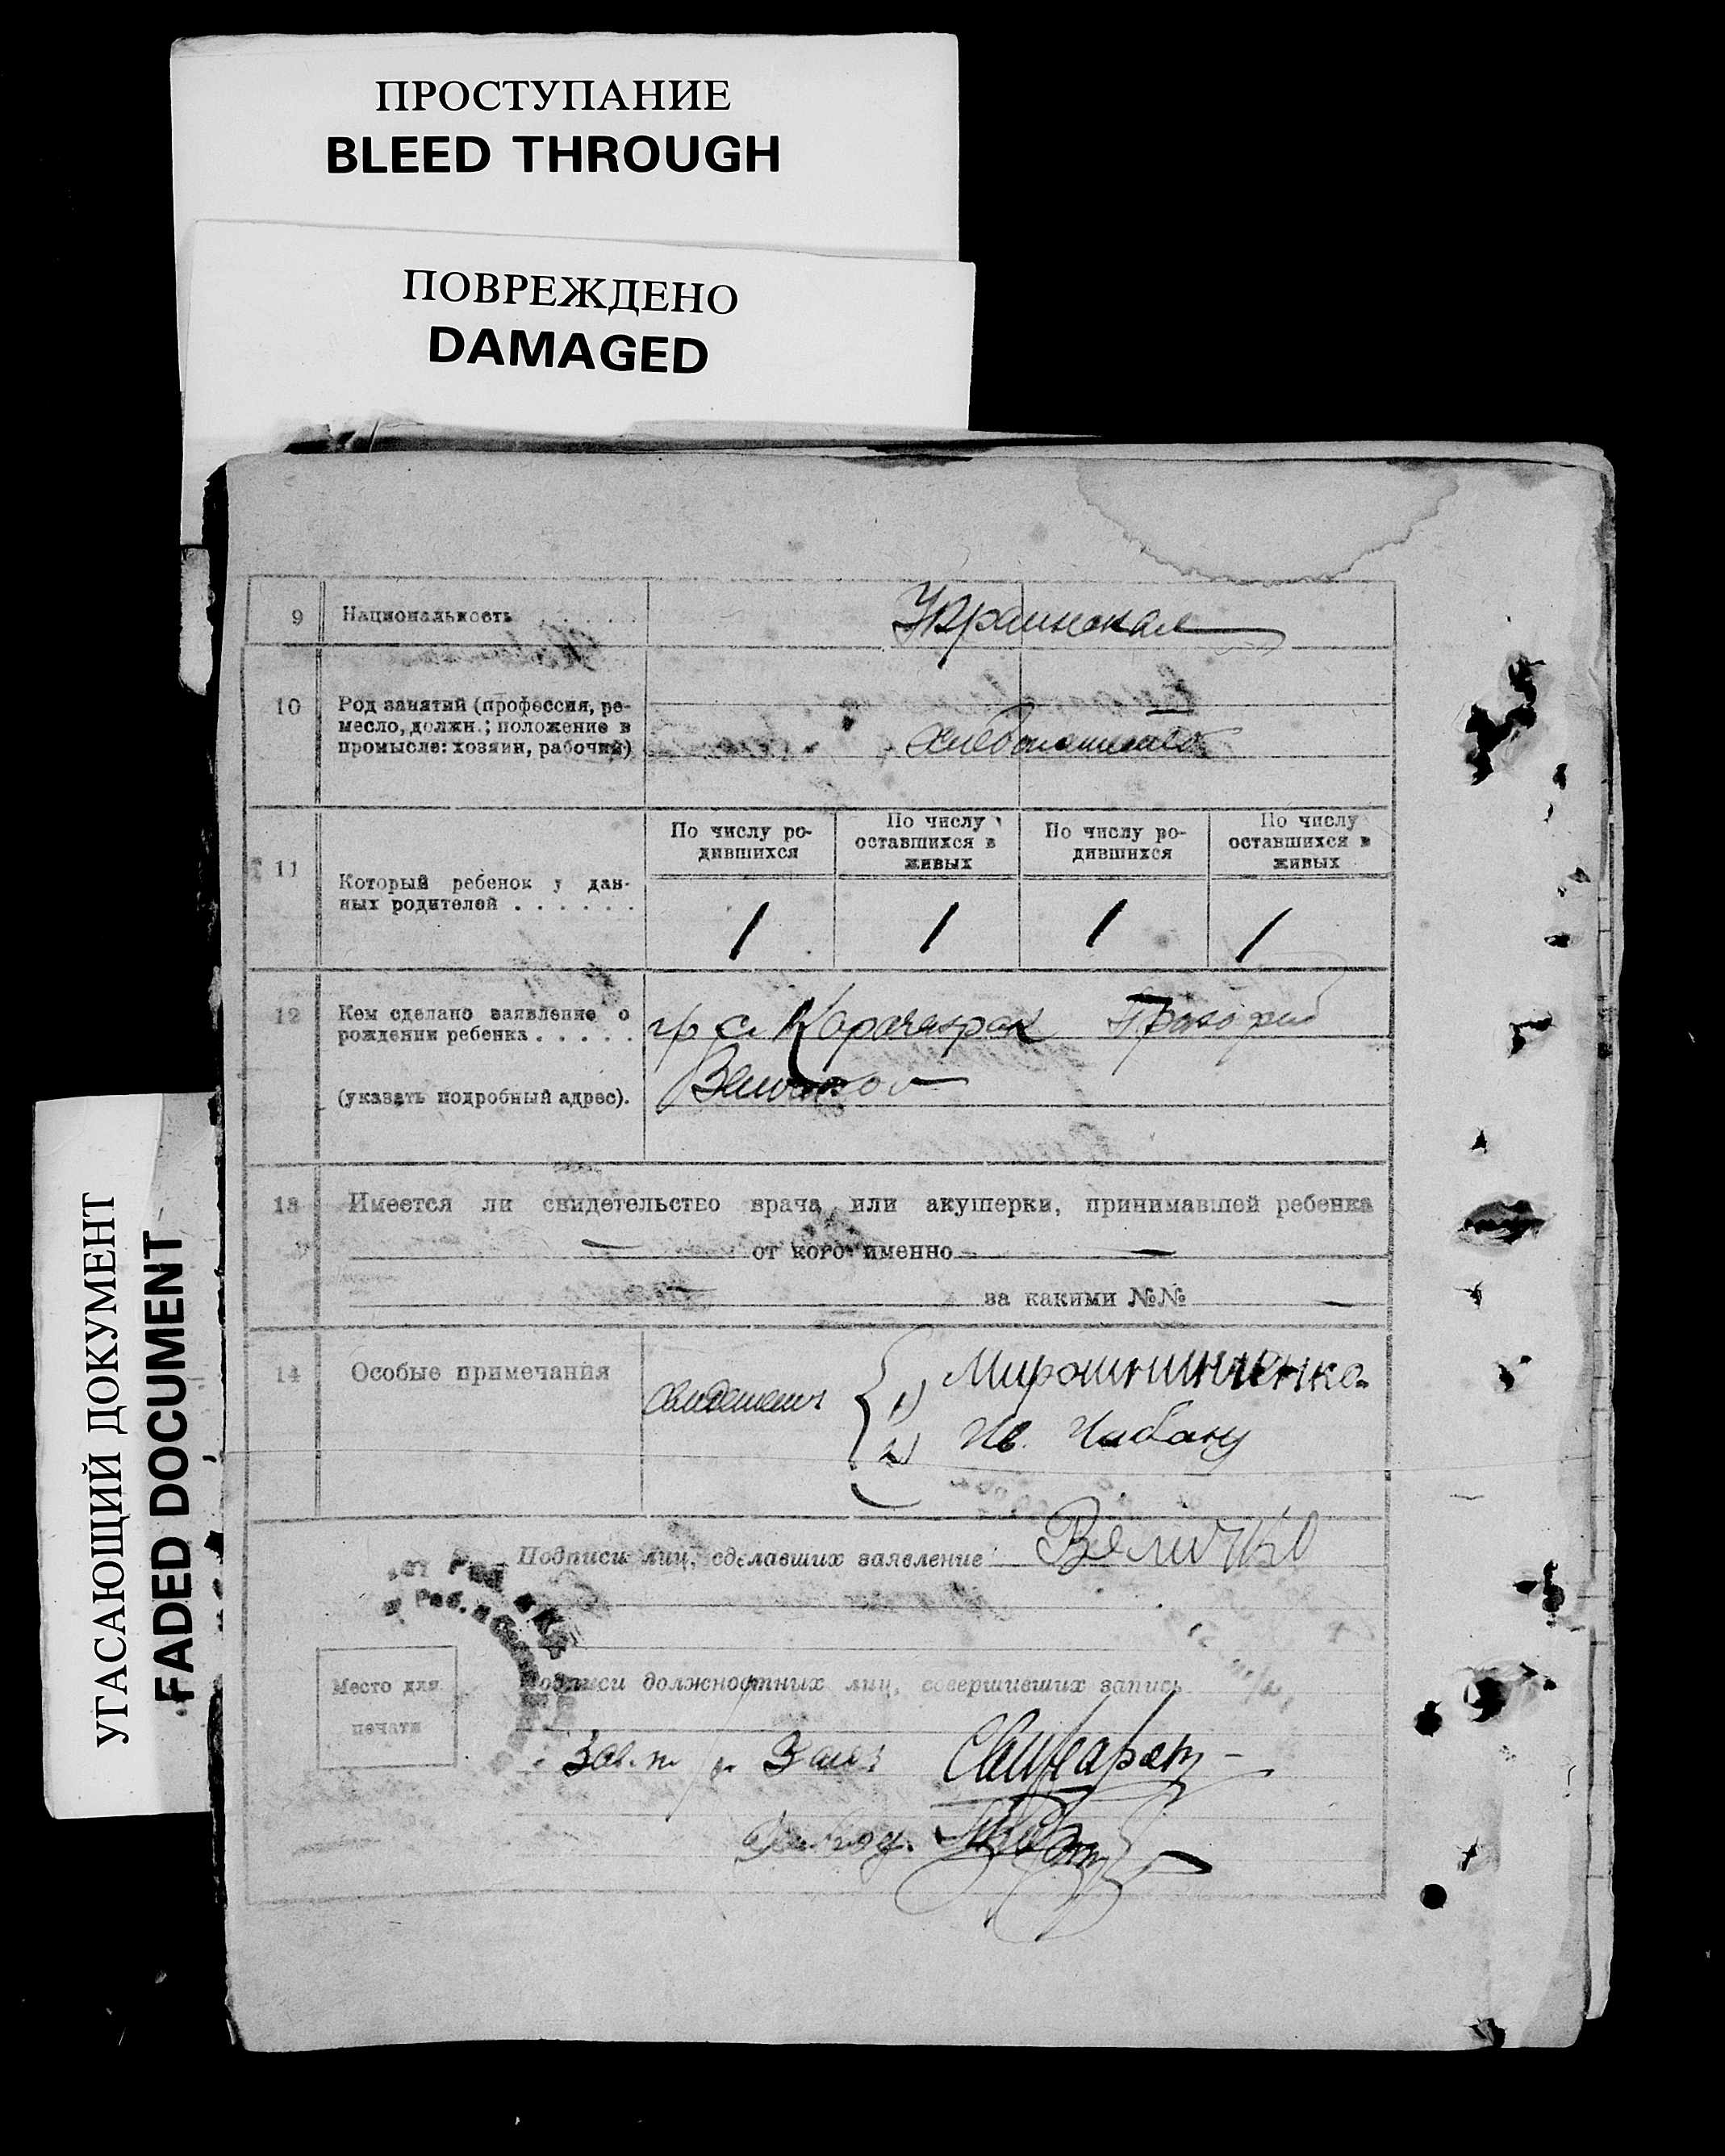 ПРОСТУПАНИЕ
BLEED THROUGH
ПОВРЕЖДЕНО
DAMAGED
УГАСАЮЩИЙ ДОКУМЕНТ
FADED DOCUMENT
9 Национальность . . . . . Украинская
10 Род занятий (профессия, ре-
месло, должн.; положение в
промысле: хозяин, рабочий)
хлебопашество
11 Который ребенок у дан-
ных родителей . . . . . .
По числу ро-
дившихся
По числу
оставшихся в
живых
По числу ро-
дившихся
По числу
оставшихся в
живых
1 1 1 1
12 Кем сделано заявление о
рождении ребенка . . . . .
(указать подробный адрес).
гр с. Карачекрак Прокофий
Величко
13 Имеется ли свидетельство врача или акушерки, принимавшей ребенка
от кого именно
за какими №№
14 Особые примечания
свидетели
1) Мирошниченко
2) Ив. Чабану
Подписи лиц, сделавших заявление Величко
Место для
печати
Подписи должностных лиц, совершивших запись